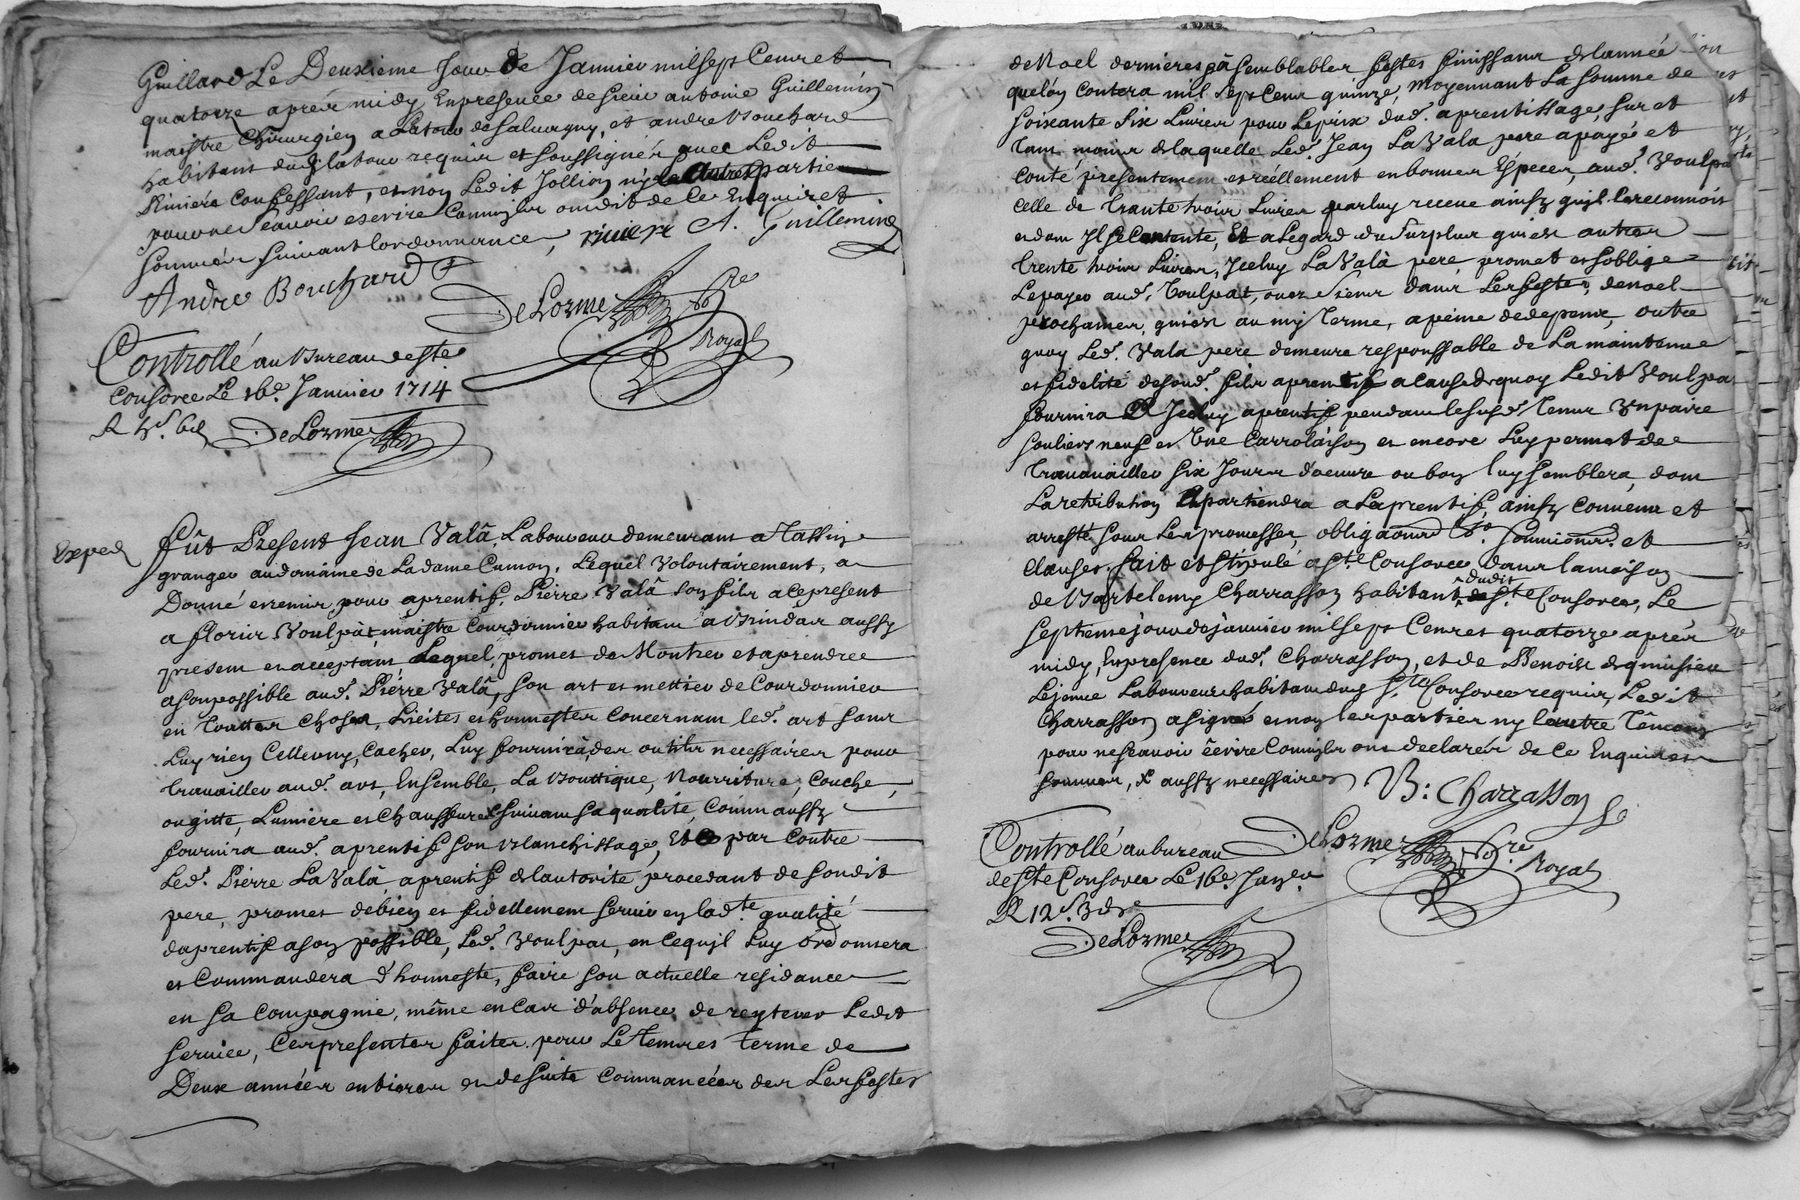 Guillard Le Deuxieme Jour de Janvier mil sept Cent et
quatorze apres midy En presence de sieur antoine Guillemin
maistre Chirurgien a Latour de salvagny, et andre Bouchard
habitant dud. latour requis et soussignés avec Ledit
Riviere Confessant, et non Ledit Jollion ny les autres parties
pour ne scavoir escrire Comm'ils ont dit de Ce Enquis et
sommés suivant lordonnance, riviere A. Guillemin
Andre Bouchard
DeLorme No.re
Royal
Controllé au Bureau de ste
Consorce Le 16e. Janvier 1714
DeLorme
Exped
fût Present Jean Valâ Laboureur demeurant a Tassin
granger au domaine de La dame Cumon, Lequel Volontairement, a
Donné et remis pour aprentif, Pierre Valâ son fils a ce present
a florir Voulpat maistre Courdonnier habitant a Brindas aussy
present et acceptant Lequel, promet de Montrer et aprendre
a son possible aud. Pierre Valâ, son art et mettier de Courdonnier
en Touttes Choses, Licites et honnestes Concernant led. art sans
Luy rien Celler ny Cacher, Luy fournira des outils necessaires pour
travailler aud. art, Ensemble, La Bouttique, Nourriture, Couche,
ou gitte, Lumiere et Chauffure suivant sa qualité, Comm'aussy
fournira aud. aprentif son Blanchissage, Et par Contre
Led. Pierre La Valâ aprentif de lautorité procedant de sondit
pere, promet de bien et fidellement servir en lad.te qualité
daprentif a son possible, Led. Voulpat, en Ce quil Luy ordonnera
et Commandera d'honneste, faire son actuelle residance
en sa Compagnie, même en Cas d'absence de reyterer Ledit
service, Ces presentes faites pour Le Tems et Terme de
Deux années entieres et de suite Commancées des Les festes
de Noel dernieres à semblables festes finissant de lannée
que lon Contera mil sept Cent quinze, Moyennant La somme de
soixante six Livres pour Le prix dud. aprentissage, sur et
tant moins de laquelle Led. Jean La Vala pere a payé et
Conté presentement et reellement en bonnes Especes, aud. Voulpat
Celle de trante trois Livres par luy receue ainsy quil le reconnoit
et dont Il se Contente, Et a Legard du surplus qui est autres
trente trois Livres, Iceluy La Valà pere promet et soblige
Le payer aud. Voulpat, ou es siens dans Les festes de noel
prochaines, qui est au my Terme, a peine de depens, outre
quoy Led. Vala pere demeure responssable de La maintenue
et fidelité de sond. fils aprentif a Cause de quoy Ledit Voulpat
fournira A Iceluy aprentif pendant le susd. Tems Un paire
souliers neufs et Encore Luy permet de
Travavailler six Jours d'oeuvre ou bon luy semblera, dont
La retribution apartiendra a Laprentif, ainsy Convenu et
arresté, sous Les promesses obligaōns soumions et
Clauses. fait et stipulé a ste Consorce dans la maison
de Bartelemy Charrasson habitant dudit Ste Consorce, Le
septieme jour de janvier mil sept Cent et quatorze apres
midy, En presence dud. Charrasson, et de Benoist
Lejeune Laboureur habitant dud. Ste Consorce requis, Ledit
Charrasson a signé et non les parties ny lautre Témoin
pour ne scavoir écrire Comm'ils ont declarés de Ce Enquis et
sommés, aussy necessaires B: Charrasson
Controllé au bureau DeLorme No.re
de ste Consorce Le 16e. Janv.er Royal
R 12s.
DeLorme